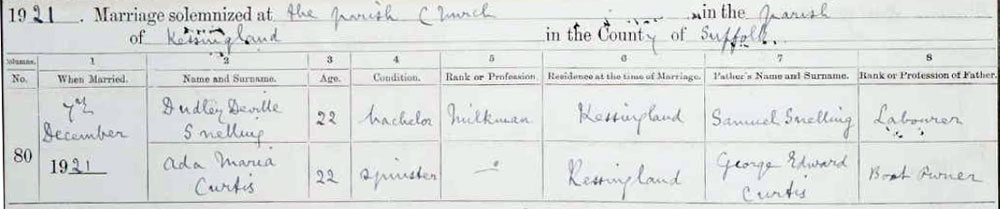 1921. Marriage solemnized at the parish Church in the parish
of Kessingland in the County of Suffolk.
Columns. 1 2 3 4 5 6 7 8
No. When Married. Name and Surname. Age. Condition. Rank or Profession. Residence at the time of Marriage. Father's Name and Surname. Rank or Profession of Father.
80 7th December 1921 Dudley Deville Snelling 22 bachelor Milkman Kessingland Samuel Snelling Labourer
Ada Maria Curtis 22 Spinster — Kessingland George Edward Curtis Boat Owner